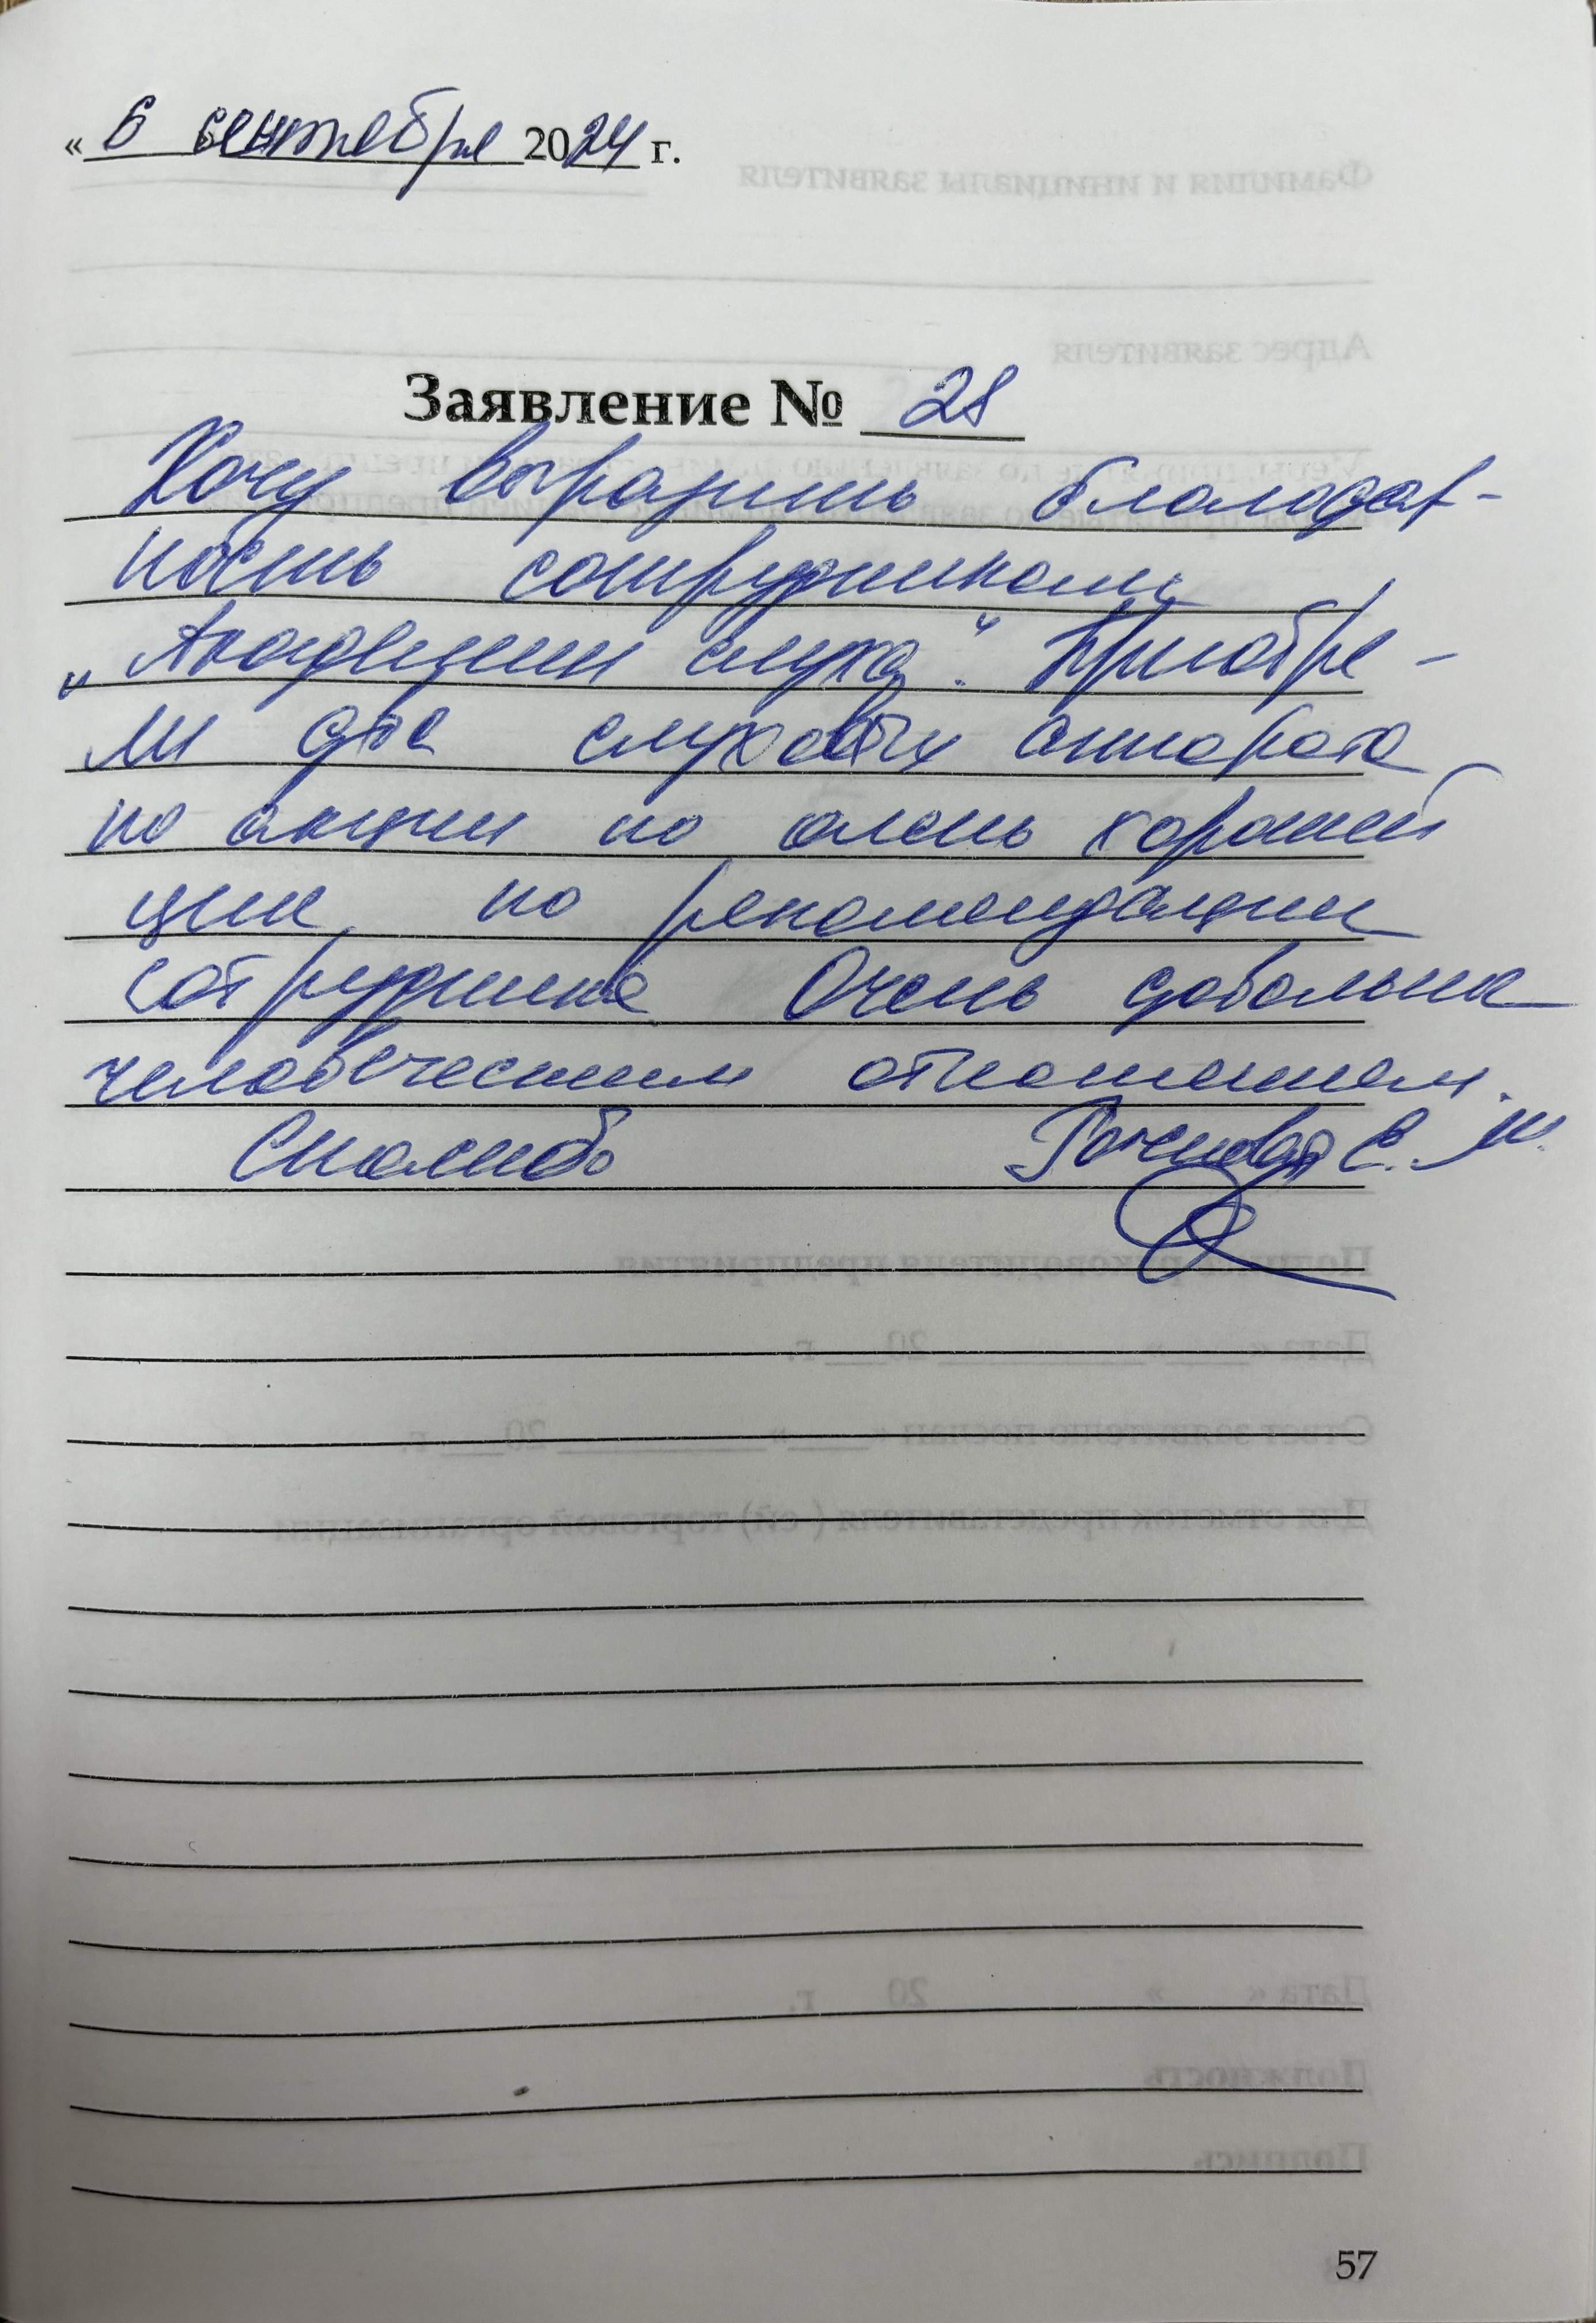 « 6 сентября 2024 г.
Заявление № 28
Хочу выразить благодар-
ность сотрудникам
„Академии слуха“. Приобре-
ли два слуховых аппарата
по акции по очень хорошей
цене, по рекомендации
сотрудника Очень довольна
человеческим отношением.
Спасибо Е. М.
57